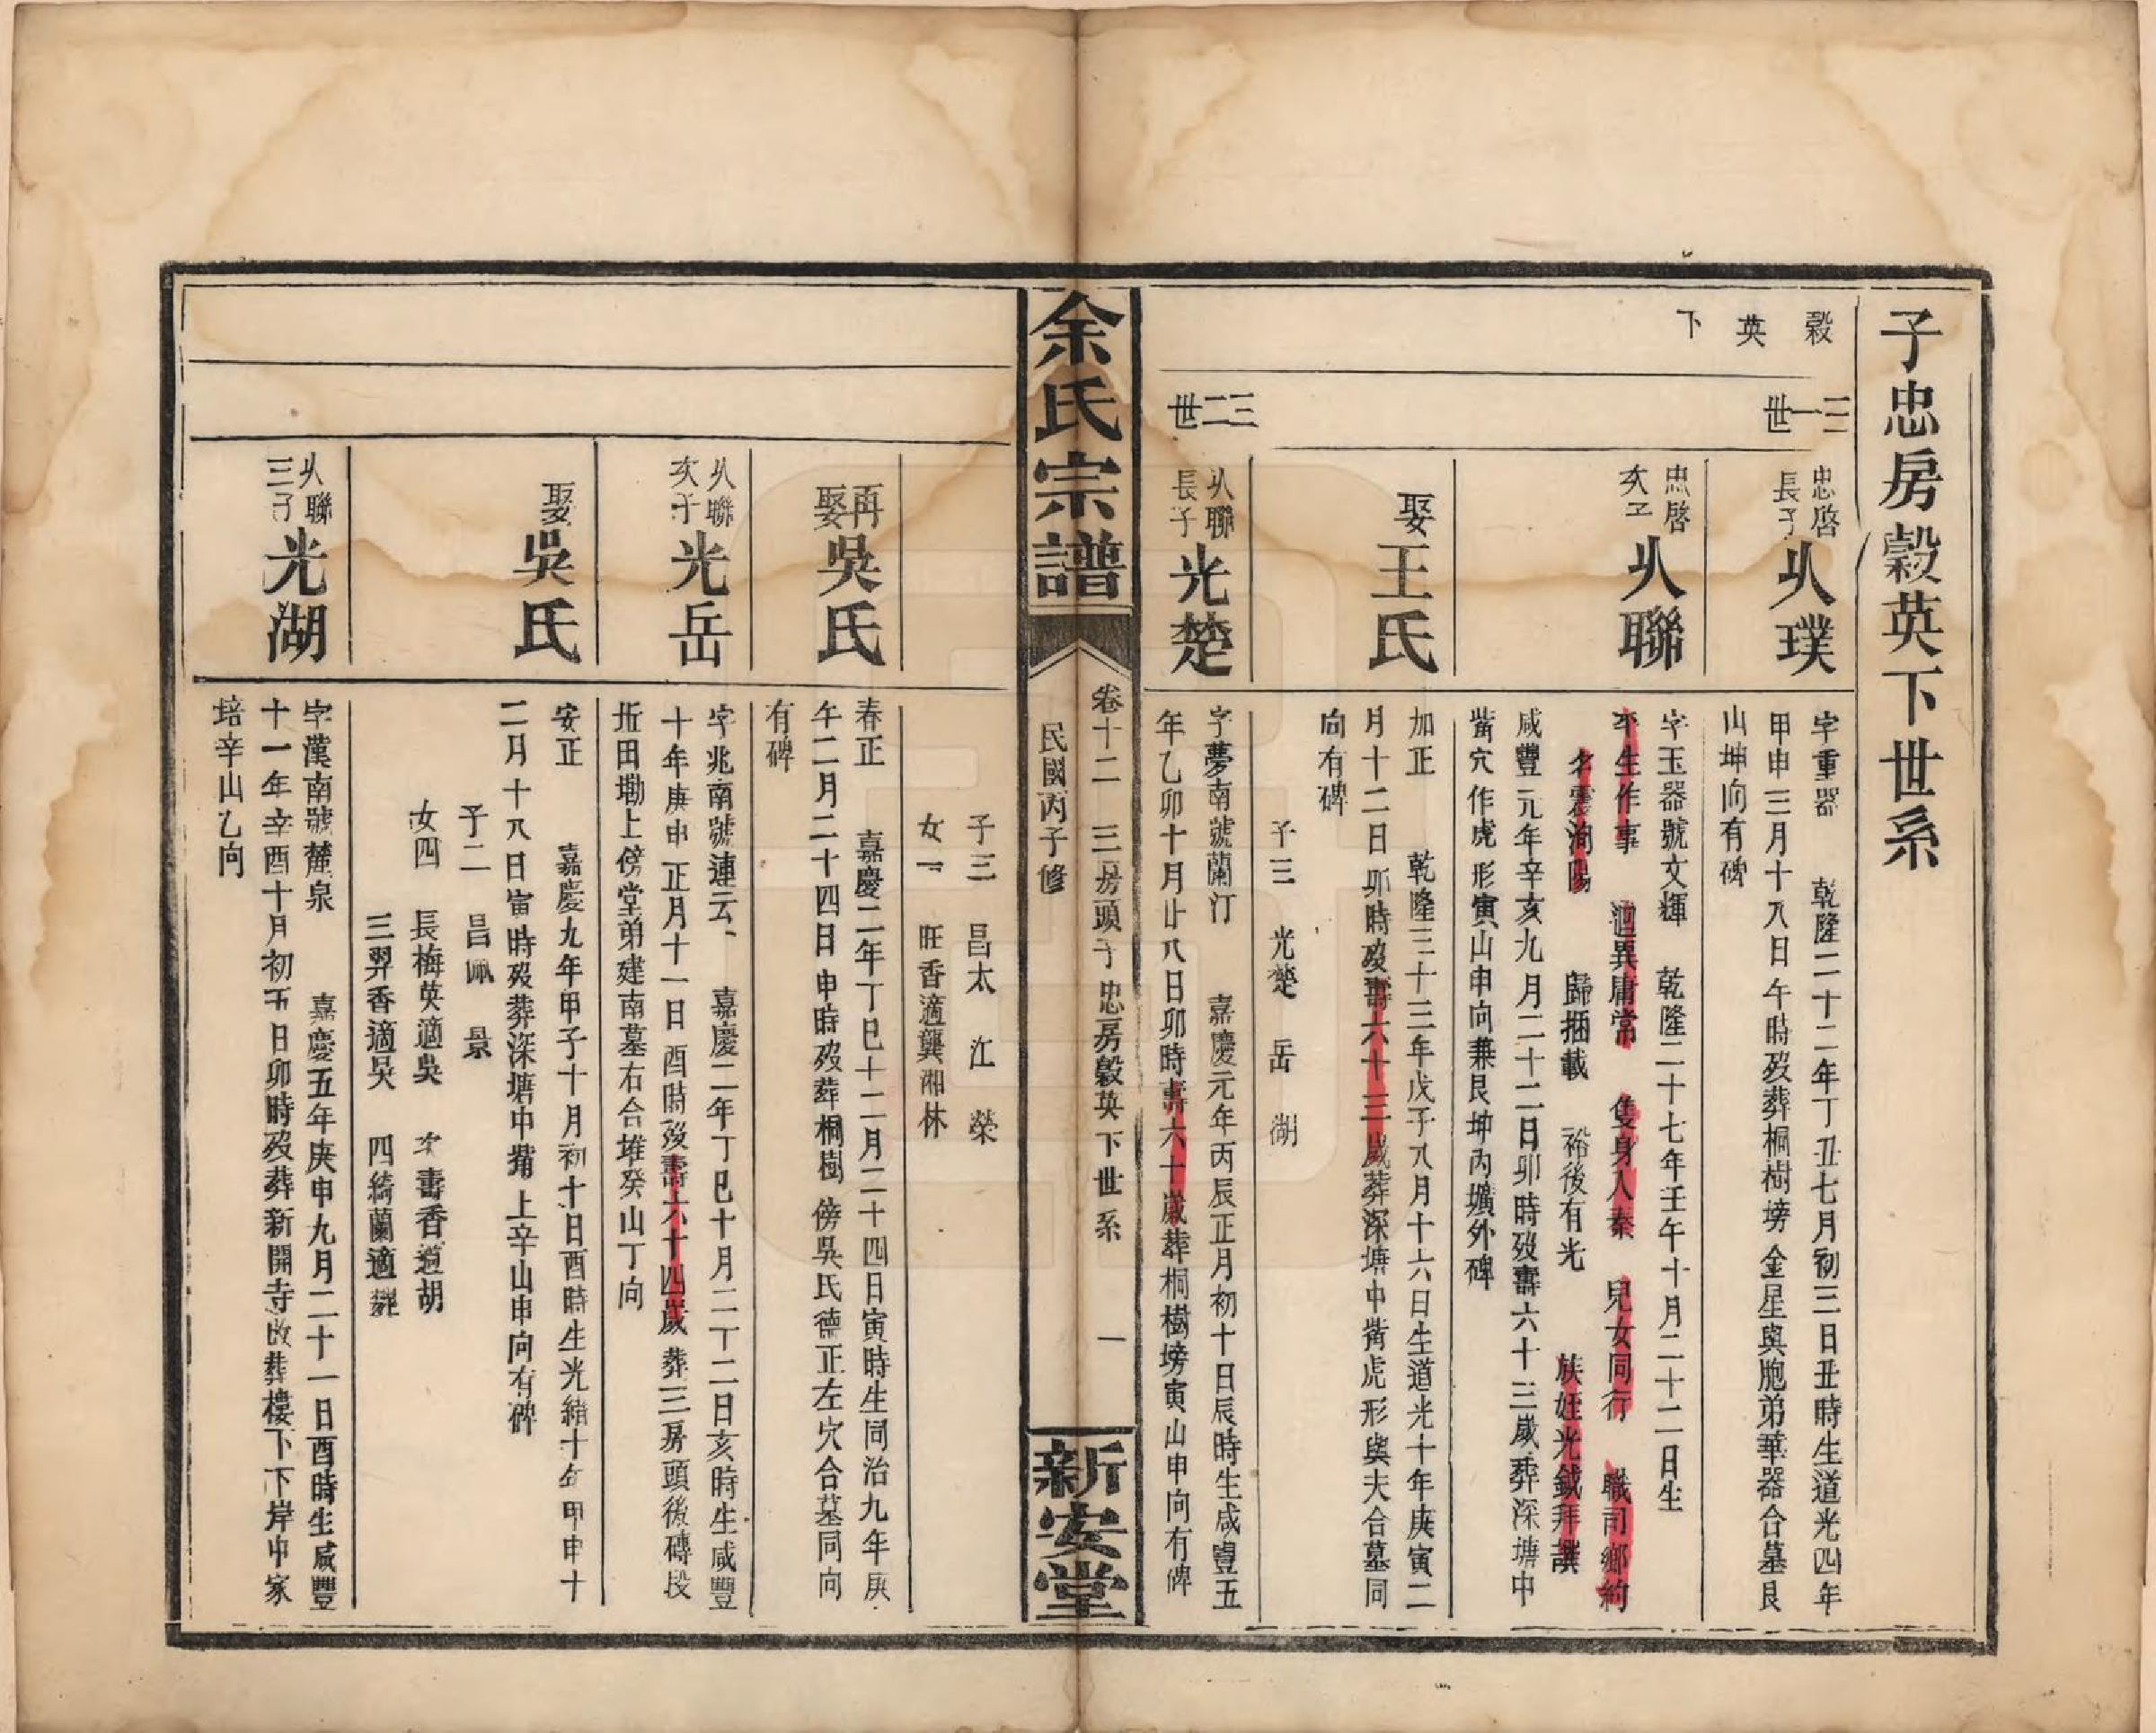 子忠房穀英下世系
穀英下
三一世
忠啓長子
𠈌璞
字重器 乾隆二十二年丁丑七月初三日丑時生道光四年
甲申三月十八日午時歿葬桐樹塝金星與胞弟華器合墓艮
山坤向有碑
忠啓次子
聯
字玉器號文揮 乾隆二十七年壬午十月二十二日生
平生作事 迥異庸常 隻身入秦 兒女同行 職司鄉約
名震洵陽 歸捆載 裕後有光 族姪光鉞拜撰
咸豐元年辛亥九月二十二日卯時歿壽六十三歲葬深塘中
嘴穴作虎形寅山申向兼艮坤內壙外碑
娶王氏
加正 乾隆三十三年戊子八月十六日生道光十年庚寅二
月十二日卯時歿壽六十三歲葬深塘中嘴虎形與夫合墓同
向有碑
子三 光楚 岳 湖
三二世
聯長子
光楚
字夢南號蘭汀 嘉慶元年丙辰正月初十日辰時生咸豐五
年乙卯十月廿八日卯時壽六十歲葬桐樹塝寅山申向有碑
余氏宗譜
卷十二 三房頭子忠房穀英下世系 一
民國丙子修
新安堂
子三 昌太 江 榮
女一 旺香適龔湘林
再娶吳氏
春正 嘉慶二年丁巳十二月二十四日寅時生同治九年庚
午二月二十四日申時歿葬桐樹傍吳氏德正左穴合墓同向
有碑
聯次子
光岳
字兆南號連云 嘉慶二年丁巳十月二十二日亥時生咸豐
十年庚申正月十一日酉時歿壽六十四歲葬三房頭後磚段
坵田墈上傍堂弟建南墓右合堆癸山丁向
娶吳氏
安正 嘉慶九年甲子十月初十日酉時生光緒十年甲申十
二月十八日寅時歿葬深塘中嘴上辛山申向有碑
子二 昌佩 景
女四 長梅英適吳 次壽香適胡
三羿香適吳 四綺蘭適韓
聯三子
光湖
字漢南號麓泉 嘉慶五年庚申九月二十一日酉時生咸豐
十一年辛酉十月初五日卯時歿葬新開寺改葬樓下下岸中家
培辛山乙向